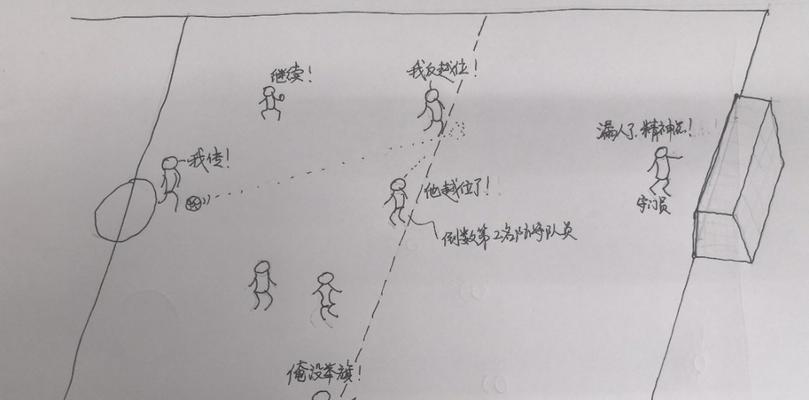 继续!
我反越位!
我传!
漏人了,精神点!
他越位了!
守门员
倒数第2名防守队员
俺没举旗!